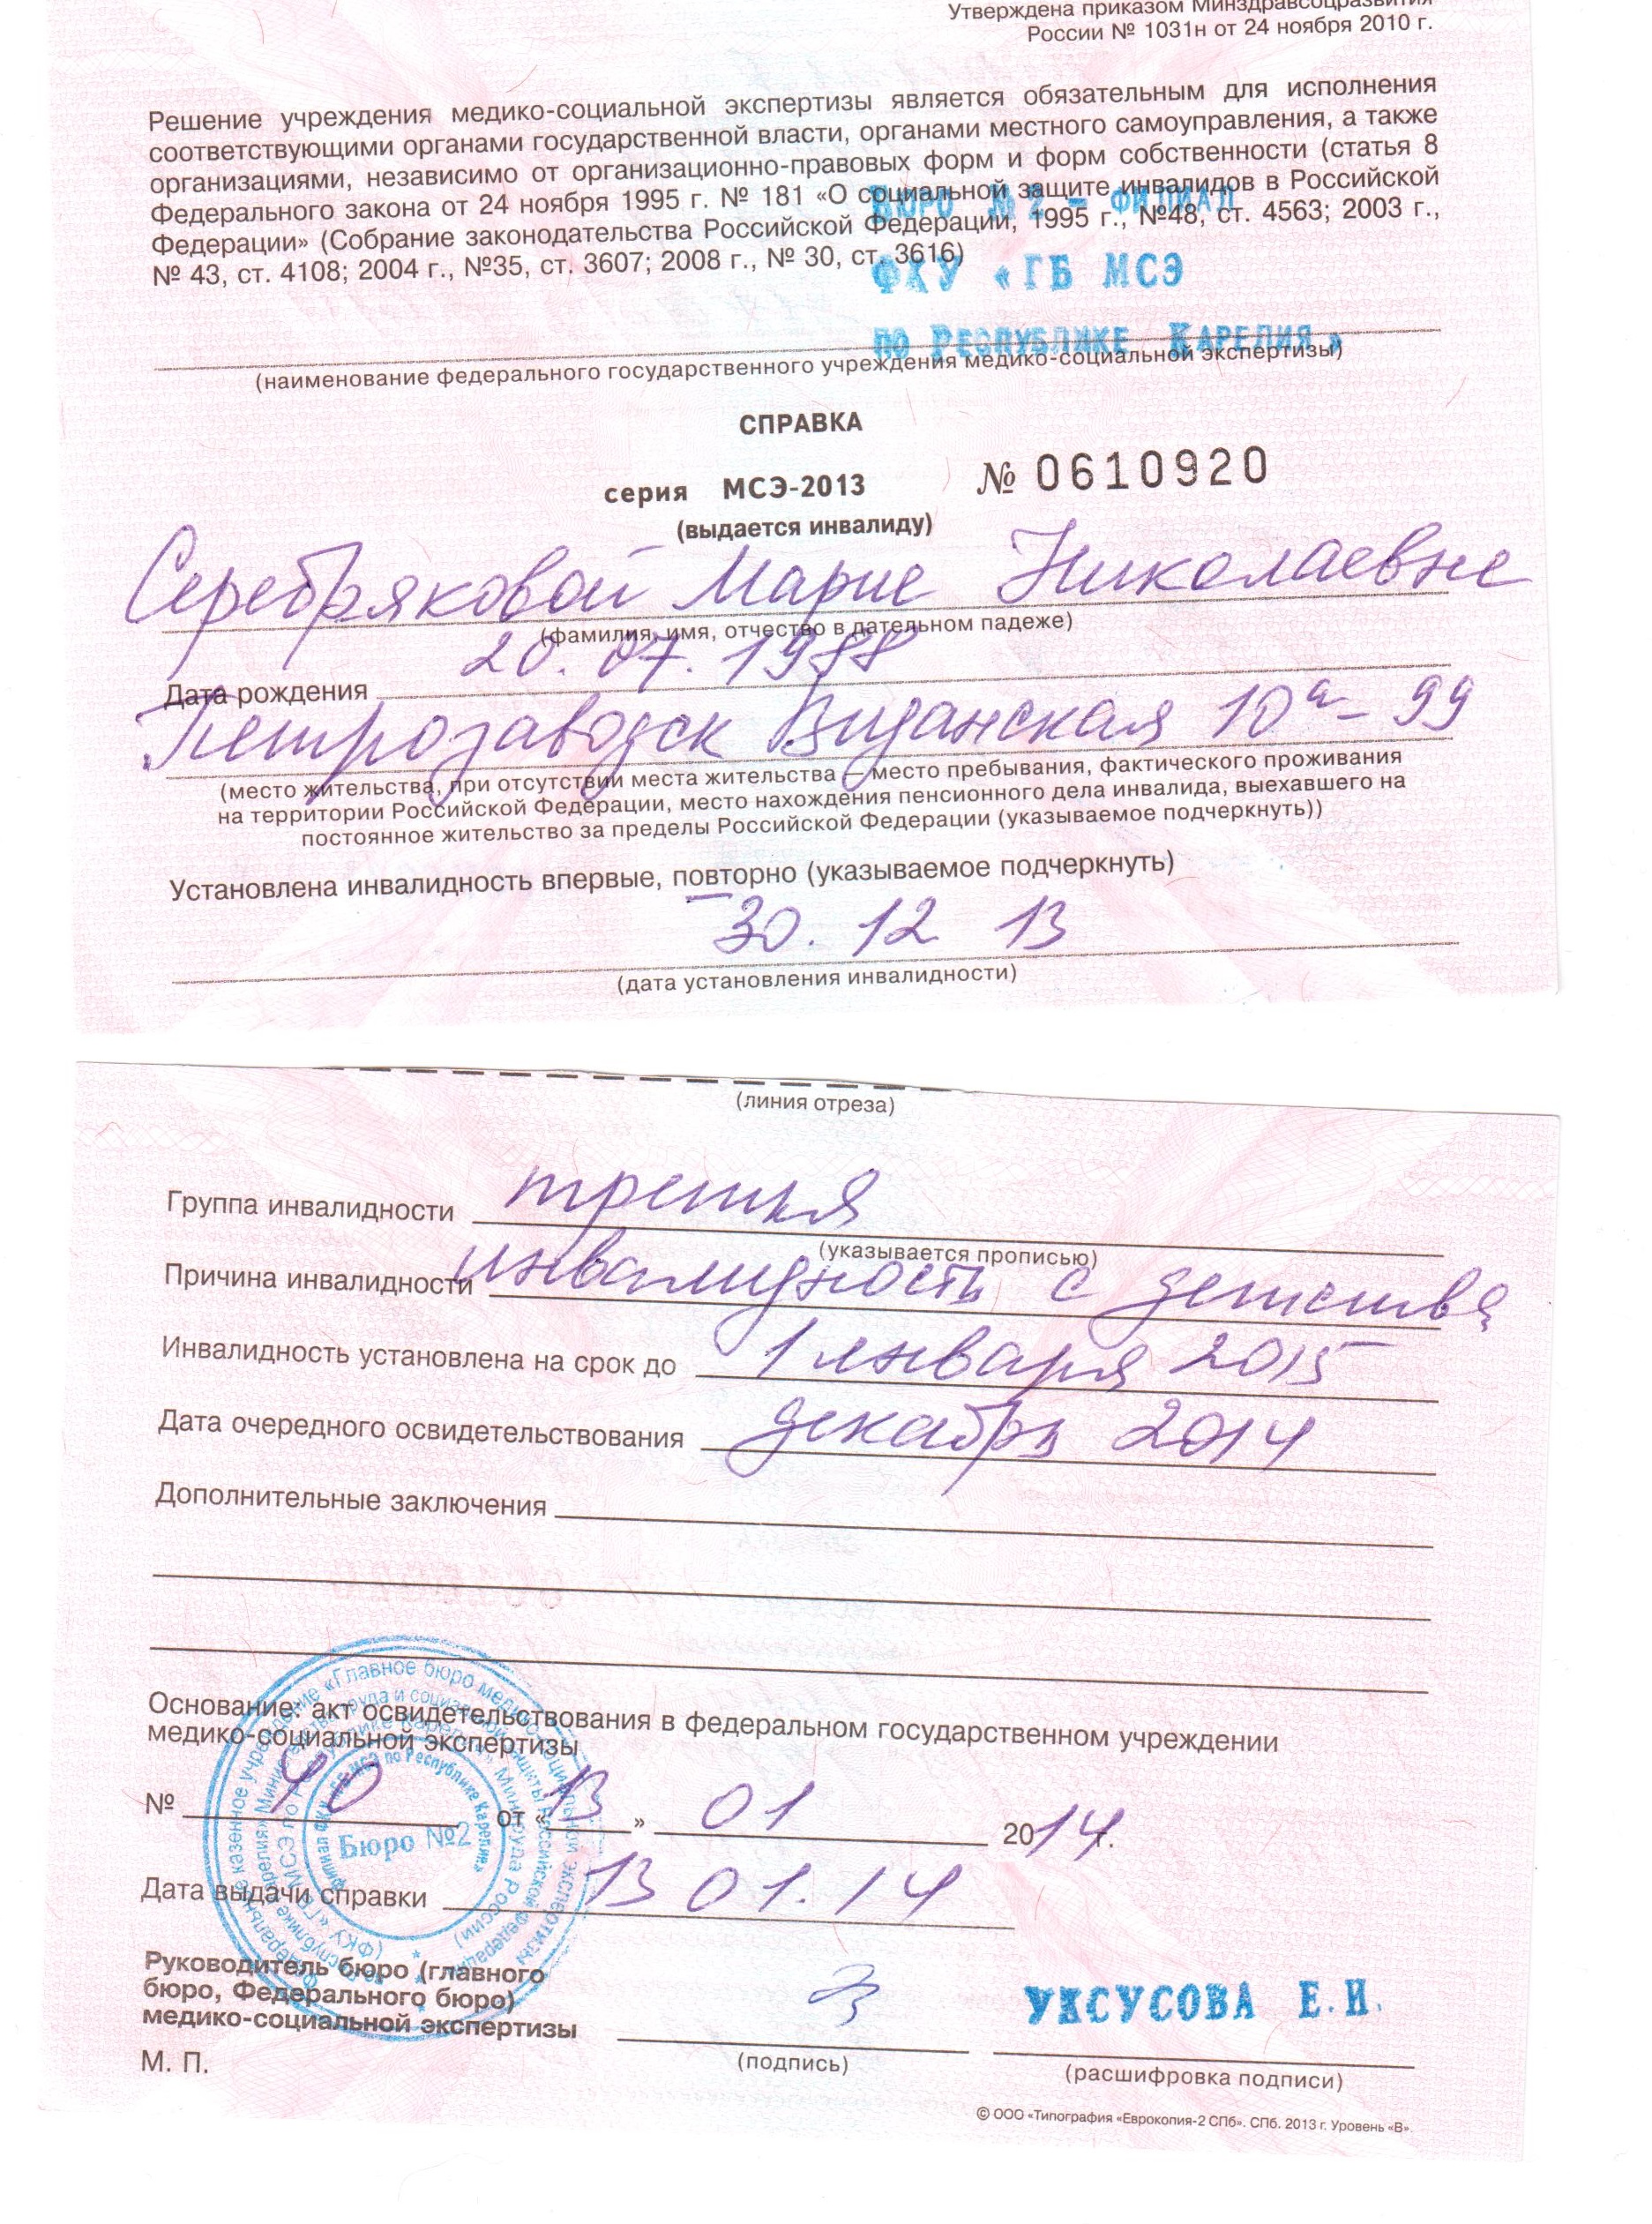 Утверждена приказом Минздравсоцразвития
России № 1031н от 24 ноября 2010 г.
Решение учреждения медико-социальной экспертизы является обязательным для исполнения
соответствующими органами государственной власти, органами местного самоуправления, а также
организациями, независимо от организационно-правовых форм и форм собственности (статья 8
Федерального закона от 24 ноября 1995 г. № 181 «О социальной защите инвалидов в Российской
Федерации» (Собрание законодательства Российской Федерации, 1995 г., №48, ст. 4563; 2003 г.,
№ 43, ст. 4108; 2004 г., №35, ст. 3607; 2008 г., № 30, ст. 3616)
БЮРО №2 - ФИЛИАЛ
ФКУ «ГБ МСЭ
ПО РЕСПУБЛИКЕ КАРЕЛИЯ»
(наименование федерального государственного учреждения медико-социальной экспертизы)
СПРАВКА
серия МСЭ-2013 № 0610920
(выдается инвалиду)
Серебряковой Марие Николаевне
(фамилия, имя, отчество в дательном падеже)
Дата рождения 20.07.1988
Петрозаводск Виданская 10а - 99
(место жительства, при отсутствии места жительства – место пребывания, фактического проживания
на территории Российской Федерации, место нахождения пенсионного дела инвалида, выехавшего на
постоянное жительство за пределы Российской Федерации (указываемое подчеркнуть))
Установлена инвалидность впервые, повторно (указываемое подчеркнуть)
30. 12 13
(дата установления инвалидности)
(линия отреза)
Группа инвалидности третья
(указывается прописью)
Причина инвалидности инвалидность с детства
Инвалидность установлена на срок до 1 января 2015
Дата очередного освидетельствования декабрь 2014
Дополнительные заключения
Основание: акт освидетельствования в федеральном государственном учреждении
медико-социальной экспертизы
№ 40 от «13» 01 2014г.
Бюро №2
Дата выдачи справки 13 01.14
Руководитель бюро (главного
бюро, Федерального бюро)
медико-социальной экспертизы
УКСУСОВА Е.И.
М. П.
(подпись)
(расшифровка подписи)
© ООО «Типография «Еврокопия-2 СПб». СПб. 2013 г. Уровень «В».